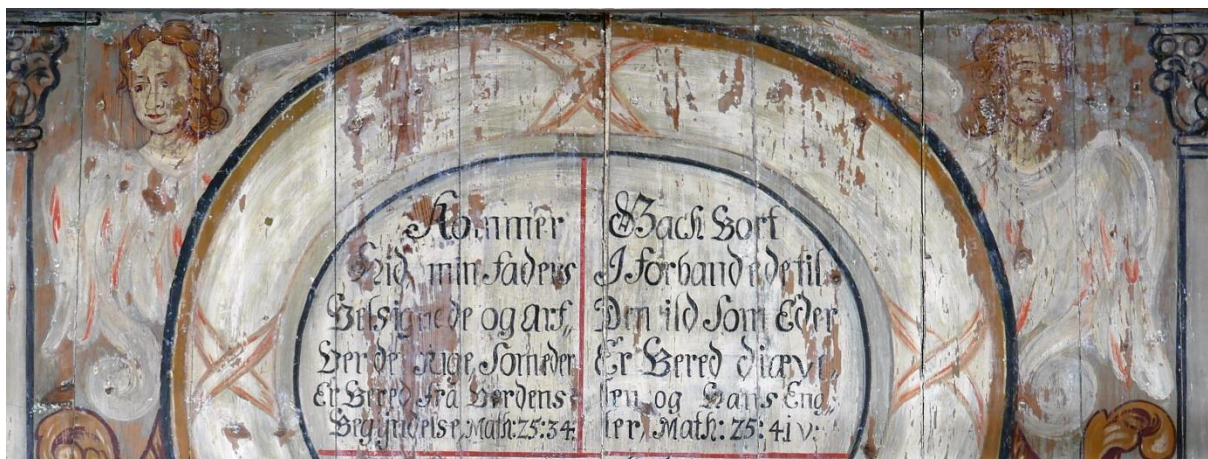 Kommer
Hid min faders
Velsignede og arf„
Ver det Rige Som eder
Er Bered fra Verdens
Begyndelse, Math: 25: 34:
Gach Bort
I forbandede til
Den ild Som Eder
Er Bered diæve„
len og Hans Eng„
ler, Math: 25: 41 v: